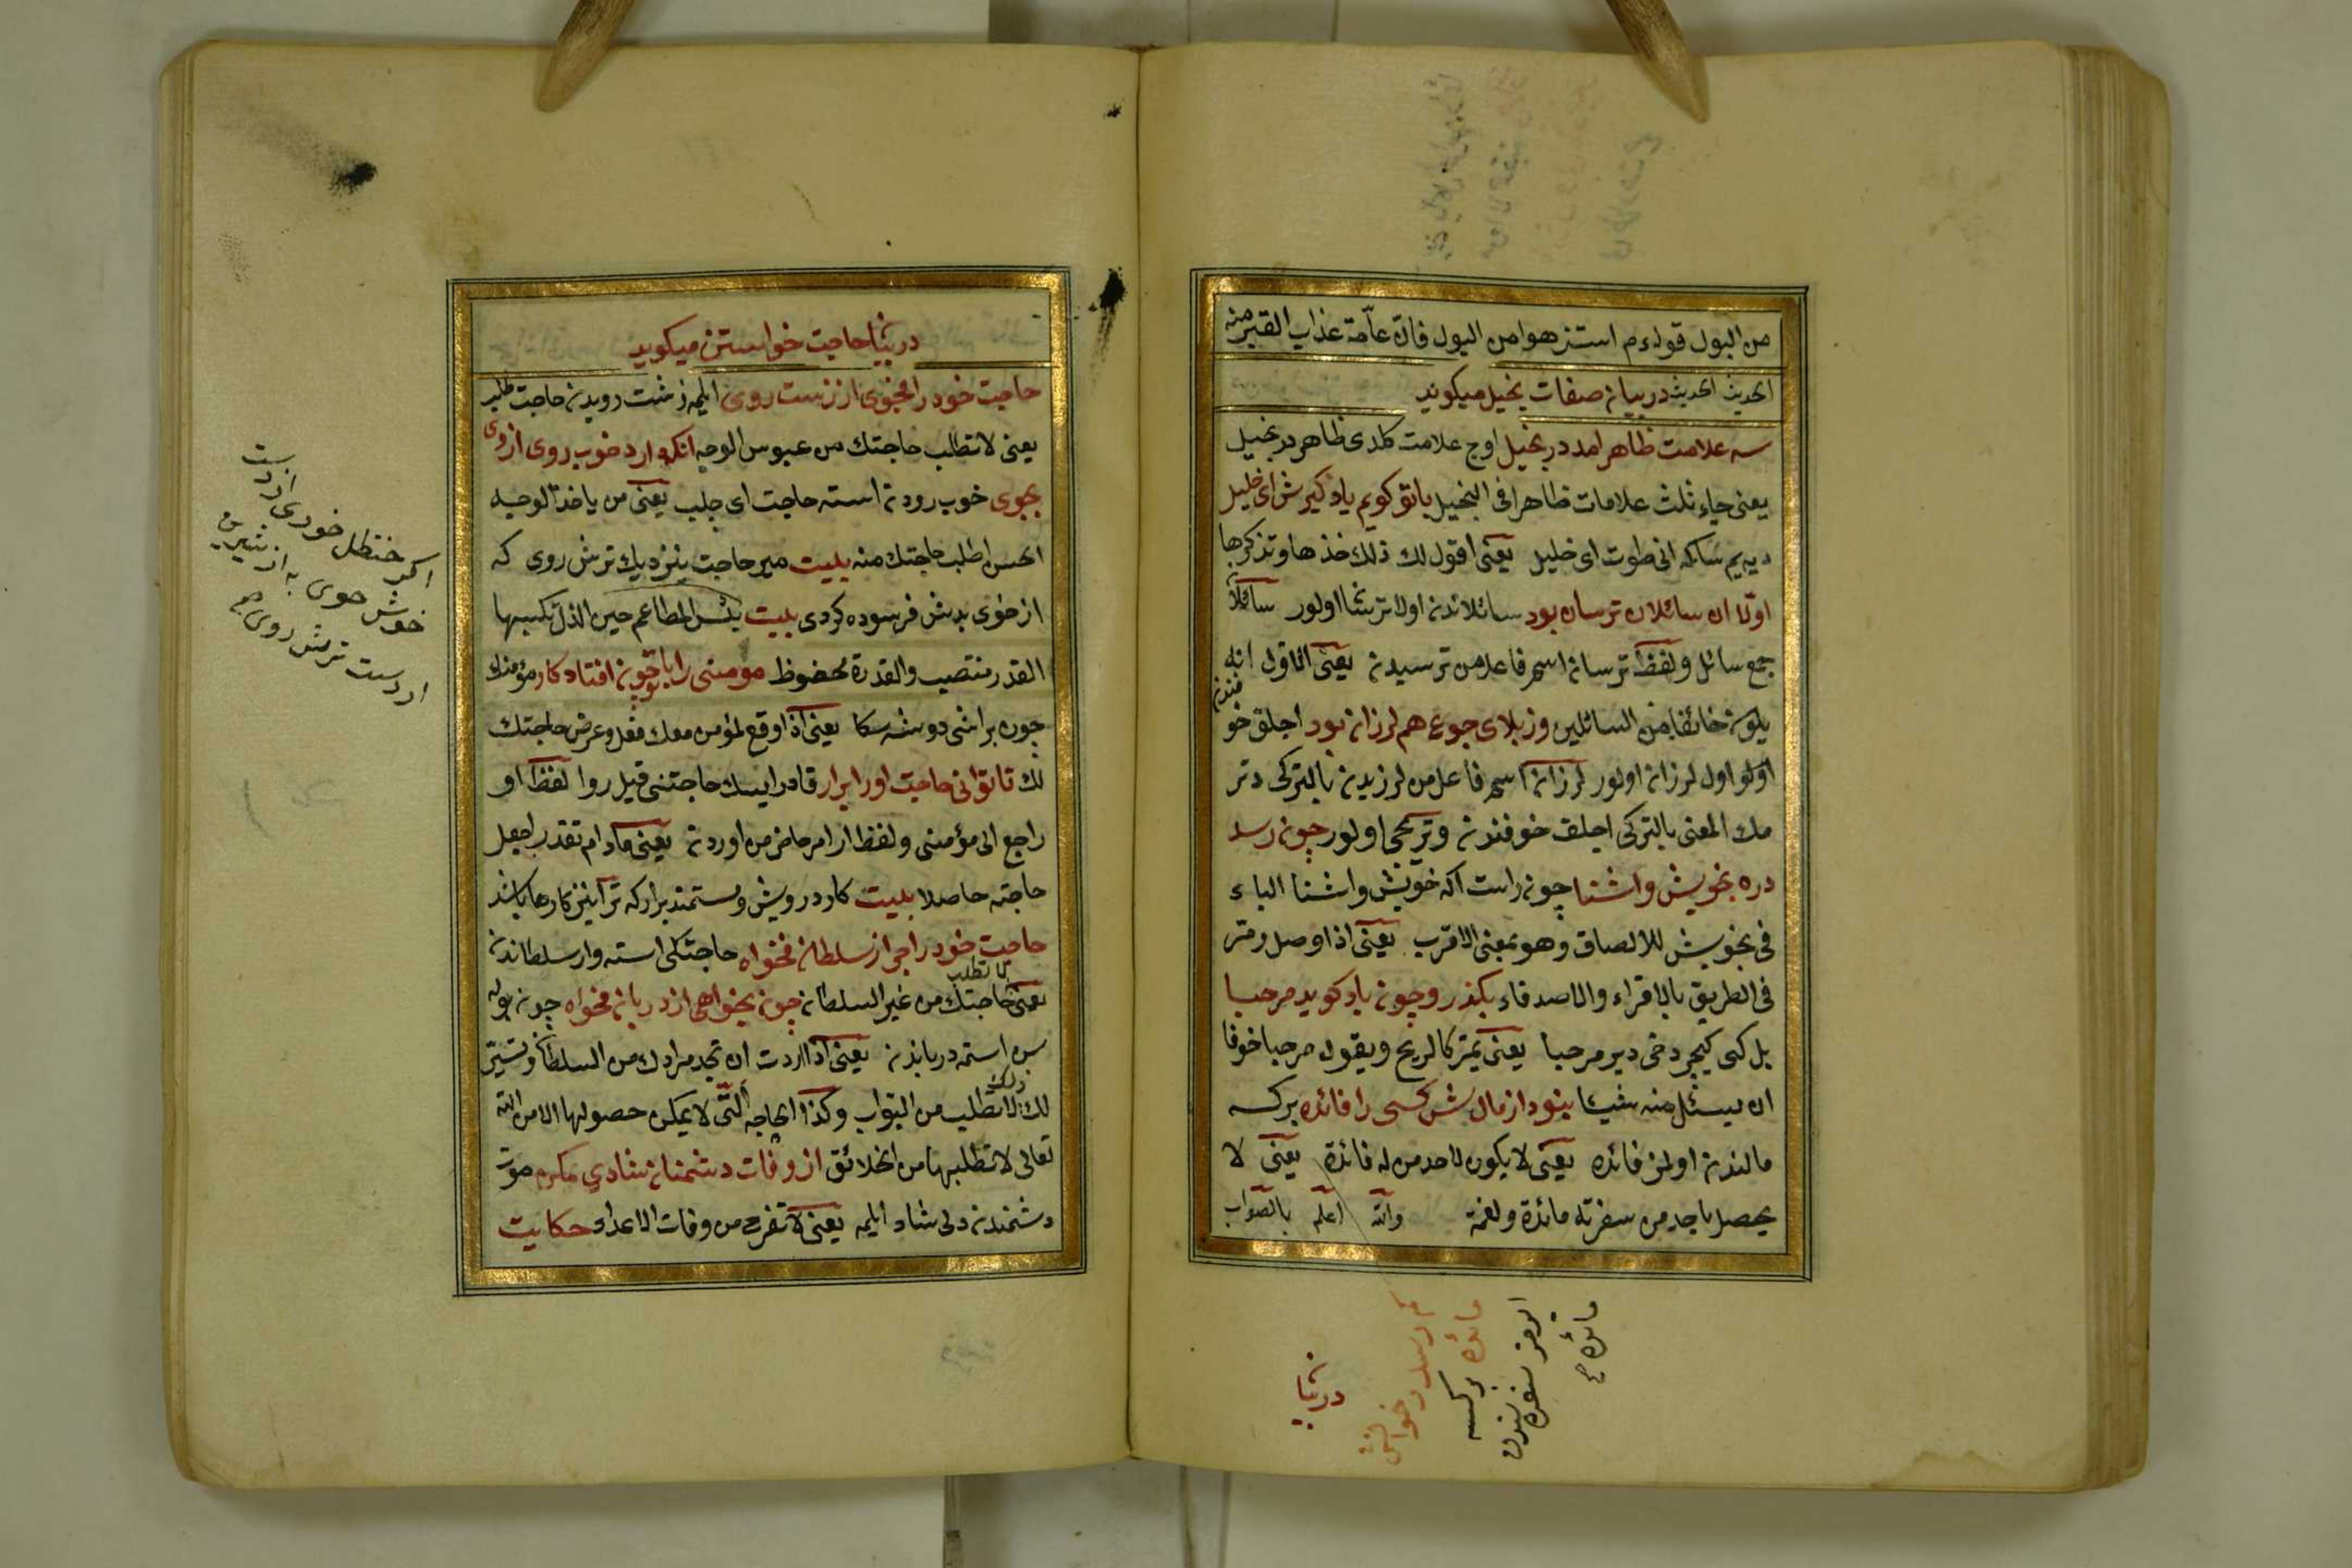 من البول قوله ءم استنزهوا من البول فان عامة عذاب القبر منه
الحديث الحديث در بيان صفات بخيل ميكويد
سه علامت ظاهر امد در بخيل اوج علامت كلدى ظاهر در بخيل
يعنى جاء ثلث علامات ظاهرا فى البخيل با تو كويم ياد كيرش اى خليل
ديه يم سكا كه انى طوت اى خليل يعنى اقول لك ذلك خذها وتذكرها
اولا ان سائلان ترسان بود سائلاندن اولا ترسا اولور سائلان
جمع سائل ولفظ ترسان اسم فاعل من ترسيدن يعنى الاول انه
يكون خائفا من السائلين وز بلاى جوع هم لرزان بود اجلق خوفندن
اولو اول لرزان اولور لرزان اسم فاعل من لرزيدن بالتركى دتر
مك المعنى بالتركى اجلق خوفندن وتريجى اولور چون رسد
در ره بخويش واشنا چون راست اكه خويش واشنا الباء
فى بخويش للالصاق وهو بمعنى الاقرب يعنى اذا وصل ومر
فى الطريق بالاقراء والاصدقاء بكذرد وچون باد كويد مرحبا
يل كبى كيچر دخى دير مرحبا يعنى يمر كالريح ويقول مرحبا خوفا
ان يسئل منه شيئا بنود از مالش كسى را فائده بر كسه
مالندن اولمز فائده يعنى لا يكون لاحد من له فائدة يعنى لا
يحصل باحد من سفرته مائدة ولقمة والله اعلم بالصواب
در بيان
كم رسد در خوانش
مائده بركسه
ايرمز سفره سندن
مائده صح
در بيان حاجت خواستن ميكويد
حاجت خود را مجوى از زشت روى ايلمه زشت رويدن حاجت طلب
يعنى لا تطلب حاجتك من عبوس الوجه انكه دارد خوب روى از وى
بجوى خوب رودن استه حاجت اى جلب يعنى من ياخذ الوجه
الحسن اطلب حاجتك منه بليت مبر حاجت بنزديك ترش روى كه
از خوى بدش فرسوده كردى بليت بئس المطاعم حين الذل تكسبها
القدر منتصب والقدرة مخفوظ مومنى را با تو چون افتاد كار مؤمنك
چون بر ايشى دوشه سكا يعنى اذا وقع لمؤمن معك فعل وعرض حاجتك
لك تا توانى حاجت او را برار قادر ايسك حاجتنى قيل روا لفظ او
راجع الى مؤمنى ولفظ ار امر حاضر من اوردن يعنى مادام تقدر اجعل
حاجته حاصلا بليت كار درويش ومستمند برار كه ترا نيز كارها باشد
حاجت خود را جز از سلطان مخواه حاجتكى استه وار سلطاندن
يعنى لا تطلب حاجتك من غير السلطان چون بخواهى از دربان مخواه چون بوله
سن استمه درباندن يعنى اذا اردت ان تجد مرادك من السلطان وتيسر
لك ذلك لا تطلب من البواب وكذا الحاجه التى لا يمكن حصولها الا من الله
تعالى لا تطلبها من الخلائق از وفات دشمنان شادى مكن موت
دشمندن دلى شاد ايلمه يعنى لا تفرح من وفات الاعداء حكايت
اكر حنظل خورى از دست
خوش خوى به از شيرين
از دست ترش روى صح